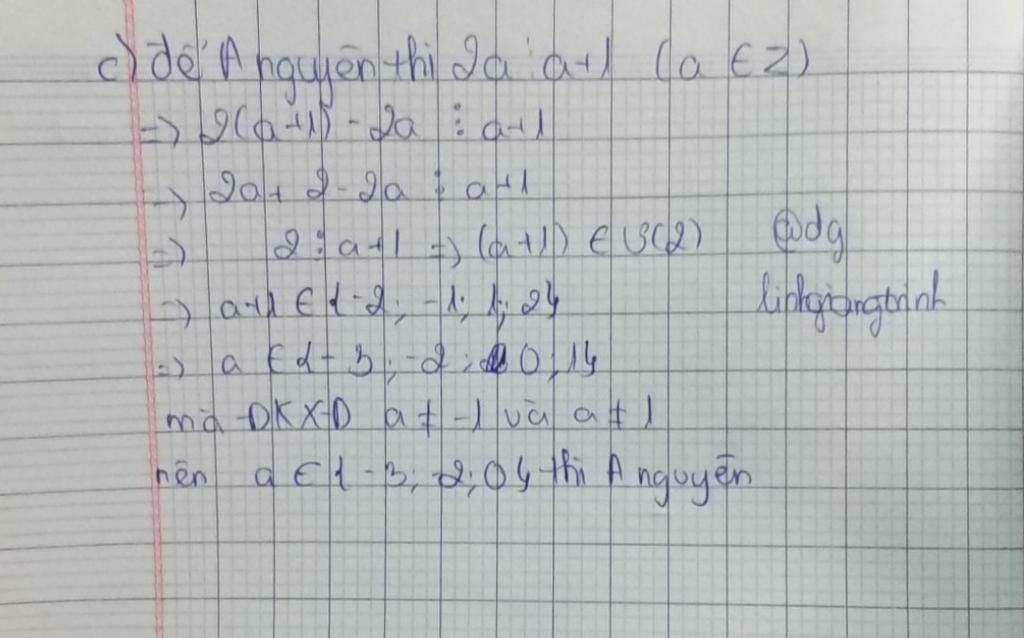 c) để A nguyên thì 2a ⋮ a+1 (a ∈ Z)
=> 2(a+1) - 2a ⋮ a+1
=> 2a + 2 - 2a ⋮ a+1
=> 2 ⋮ a+1 => (a+1) ∈ Ư(2) @dg
=> a+1 ∈ {-2; -1; 1; 2} linhgiangtrinh
=> a ∈ {-3; -2; 0; 1}
mà ĐKXĐ a ≠ -1 và a ≠ 1
nên a ∈ {-3; -2; 0} thì A nguyên